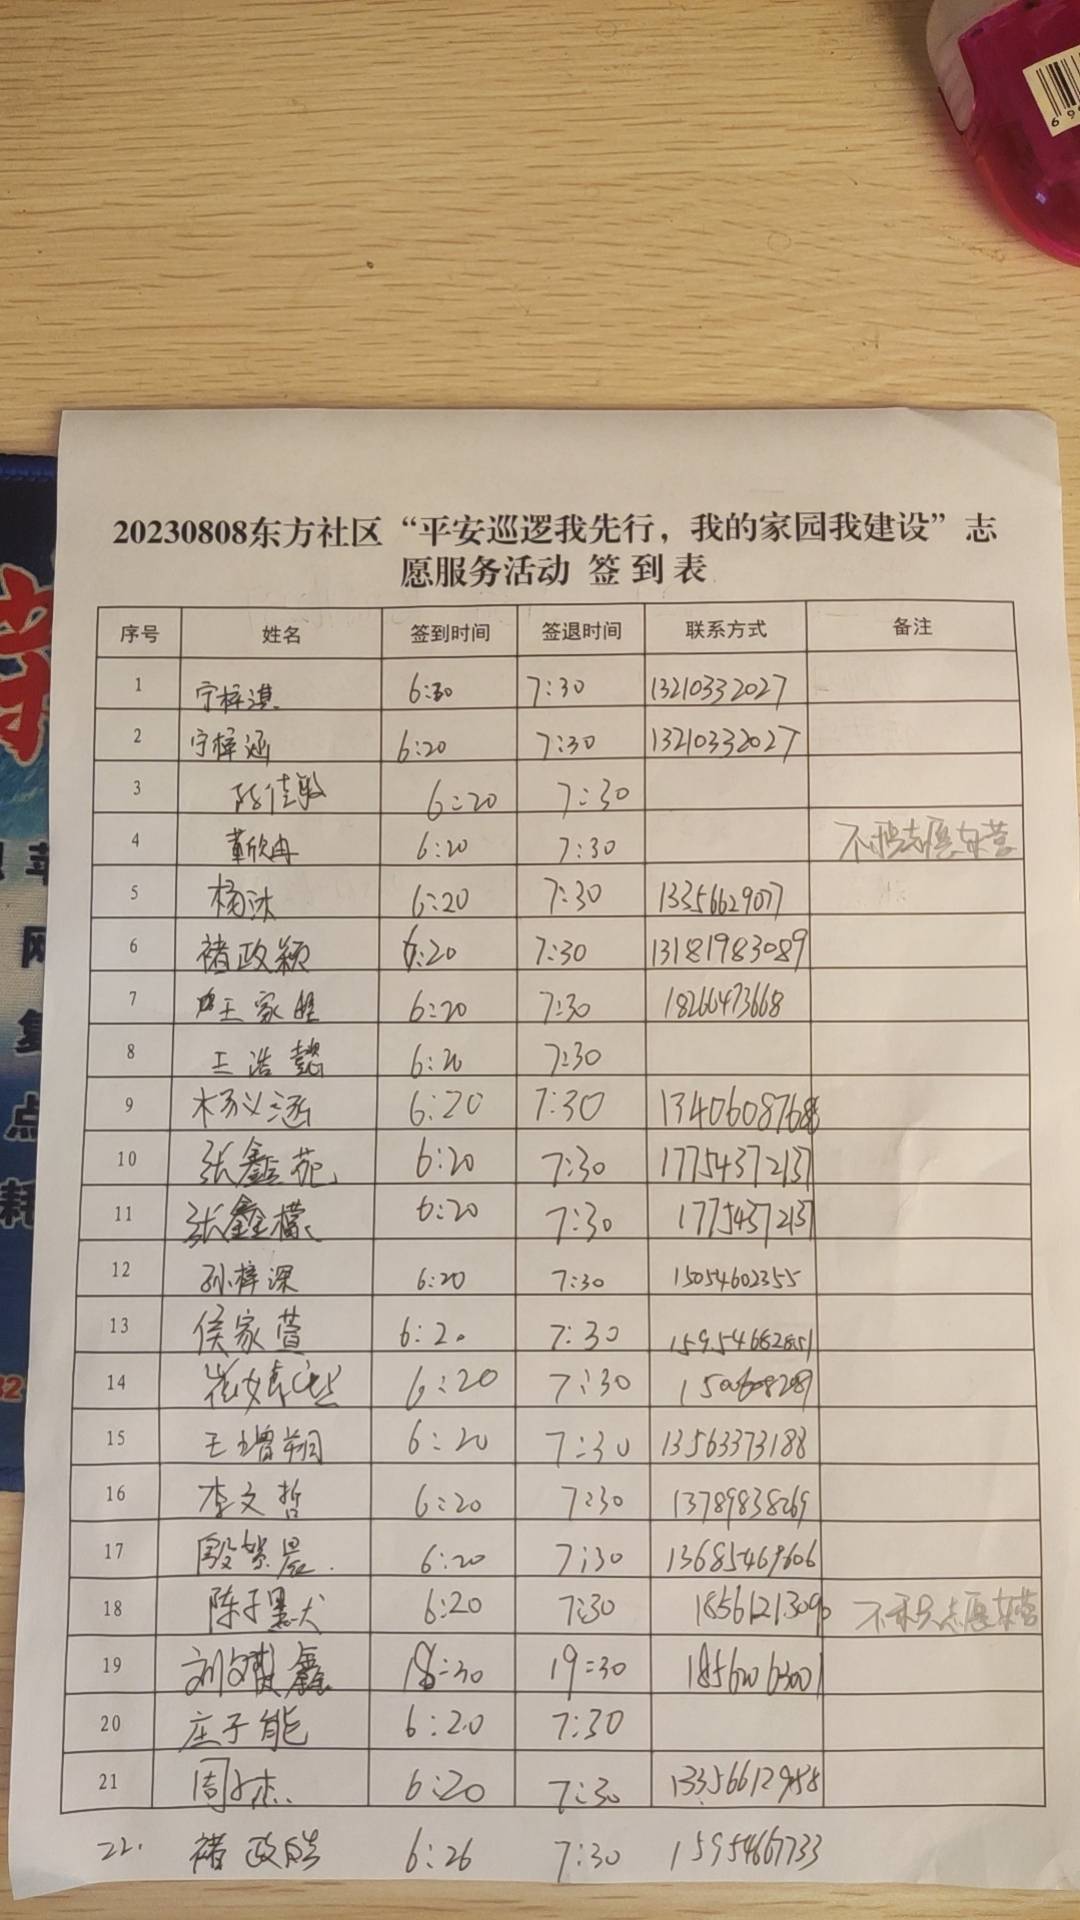 20230808东方社区“平安巡逻我先行，我的家园我建设”志
愿服务活动 签到表
序号 姓名 签到时间 签退时间 联系方式 备注
1 宁梓淇 6:30 7:30 13210332027
2 宁梓涵 6:20 7:30 13210332027
3 6:20 7:30
4 董欣冉 6:20 7:30
5 杨沐 6:20 7:30 13356629077
6 褚政颖 6:20 7:30 13181983089
7 王家 6:20 7:30 18266473668
8 王浩懿 6:20 7:30
9 杨义涵 6:20 7:30
10 张鑫苑 6:20 7:30 17754372137
11 张鑫檬 6:20 7:30 17754372137
12 孙梓深 6:20 7:30 15054602355
13 侯家萱 6:20 7:30
14 崔 6:20 7:30
15 王增翔 6:20 7:30 13563373188
16 李文哲 6:20 7:30 13789838269
17 殷 晨 6:20 7:30 13685469606
18 陈子 6:20 7:30
19 刘 鑫 18:30 19:30
20 庄子能 6:20 7:30
21 周 杰 6:20 7:30
22. 褚政皓 6:26 7:30 15954667733
耗
点
网